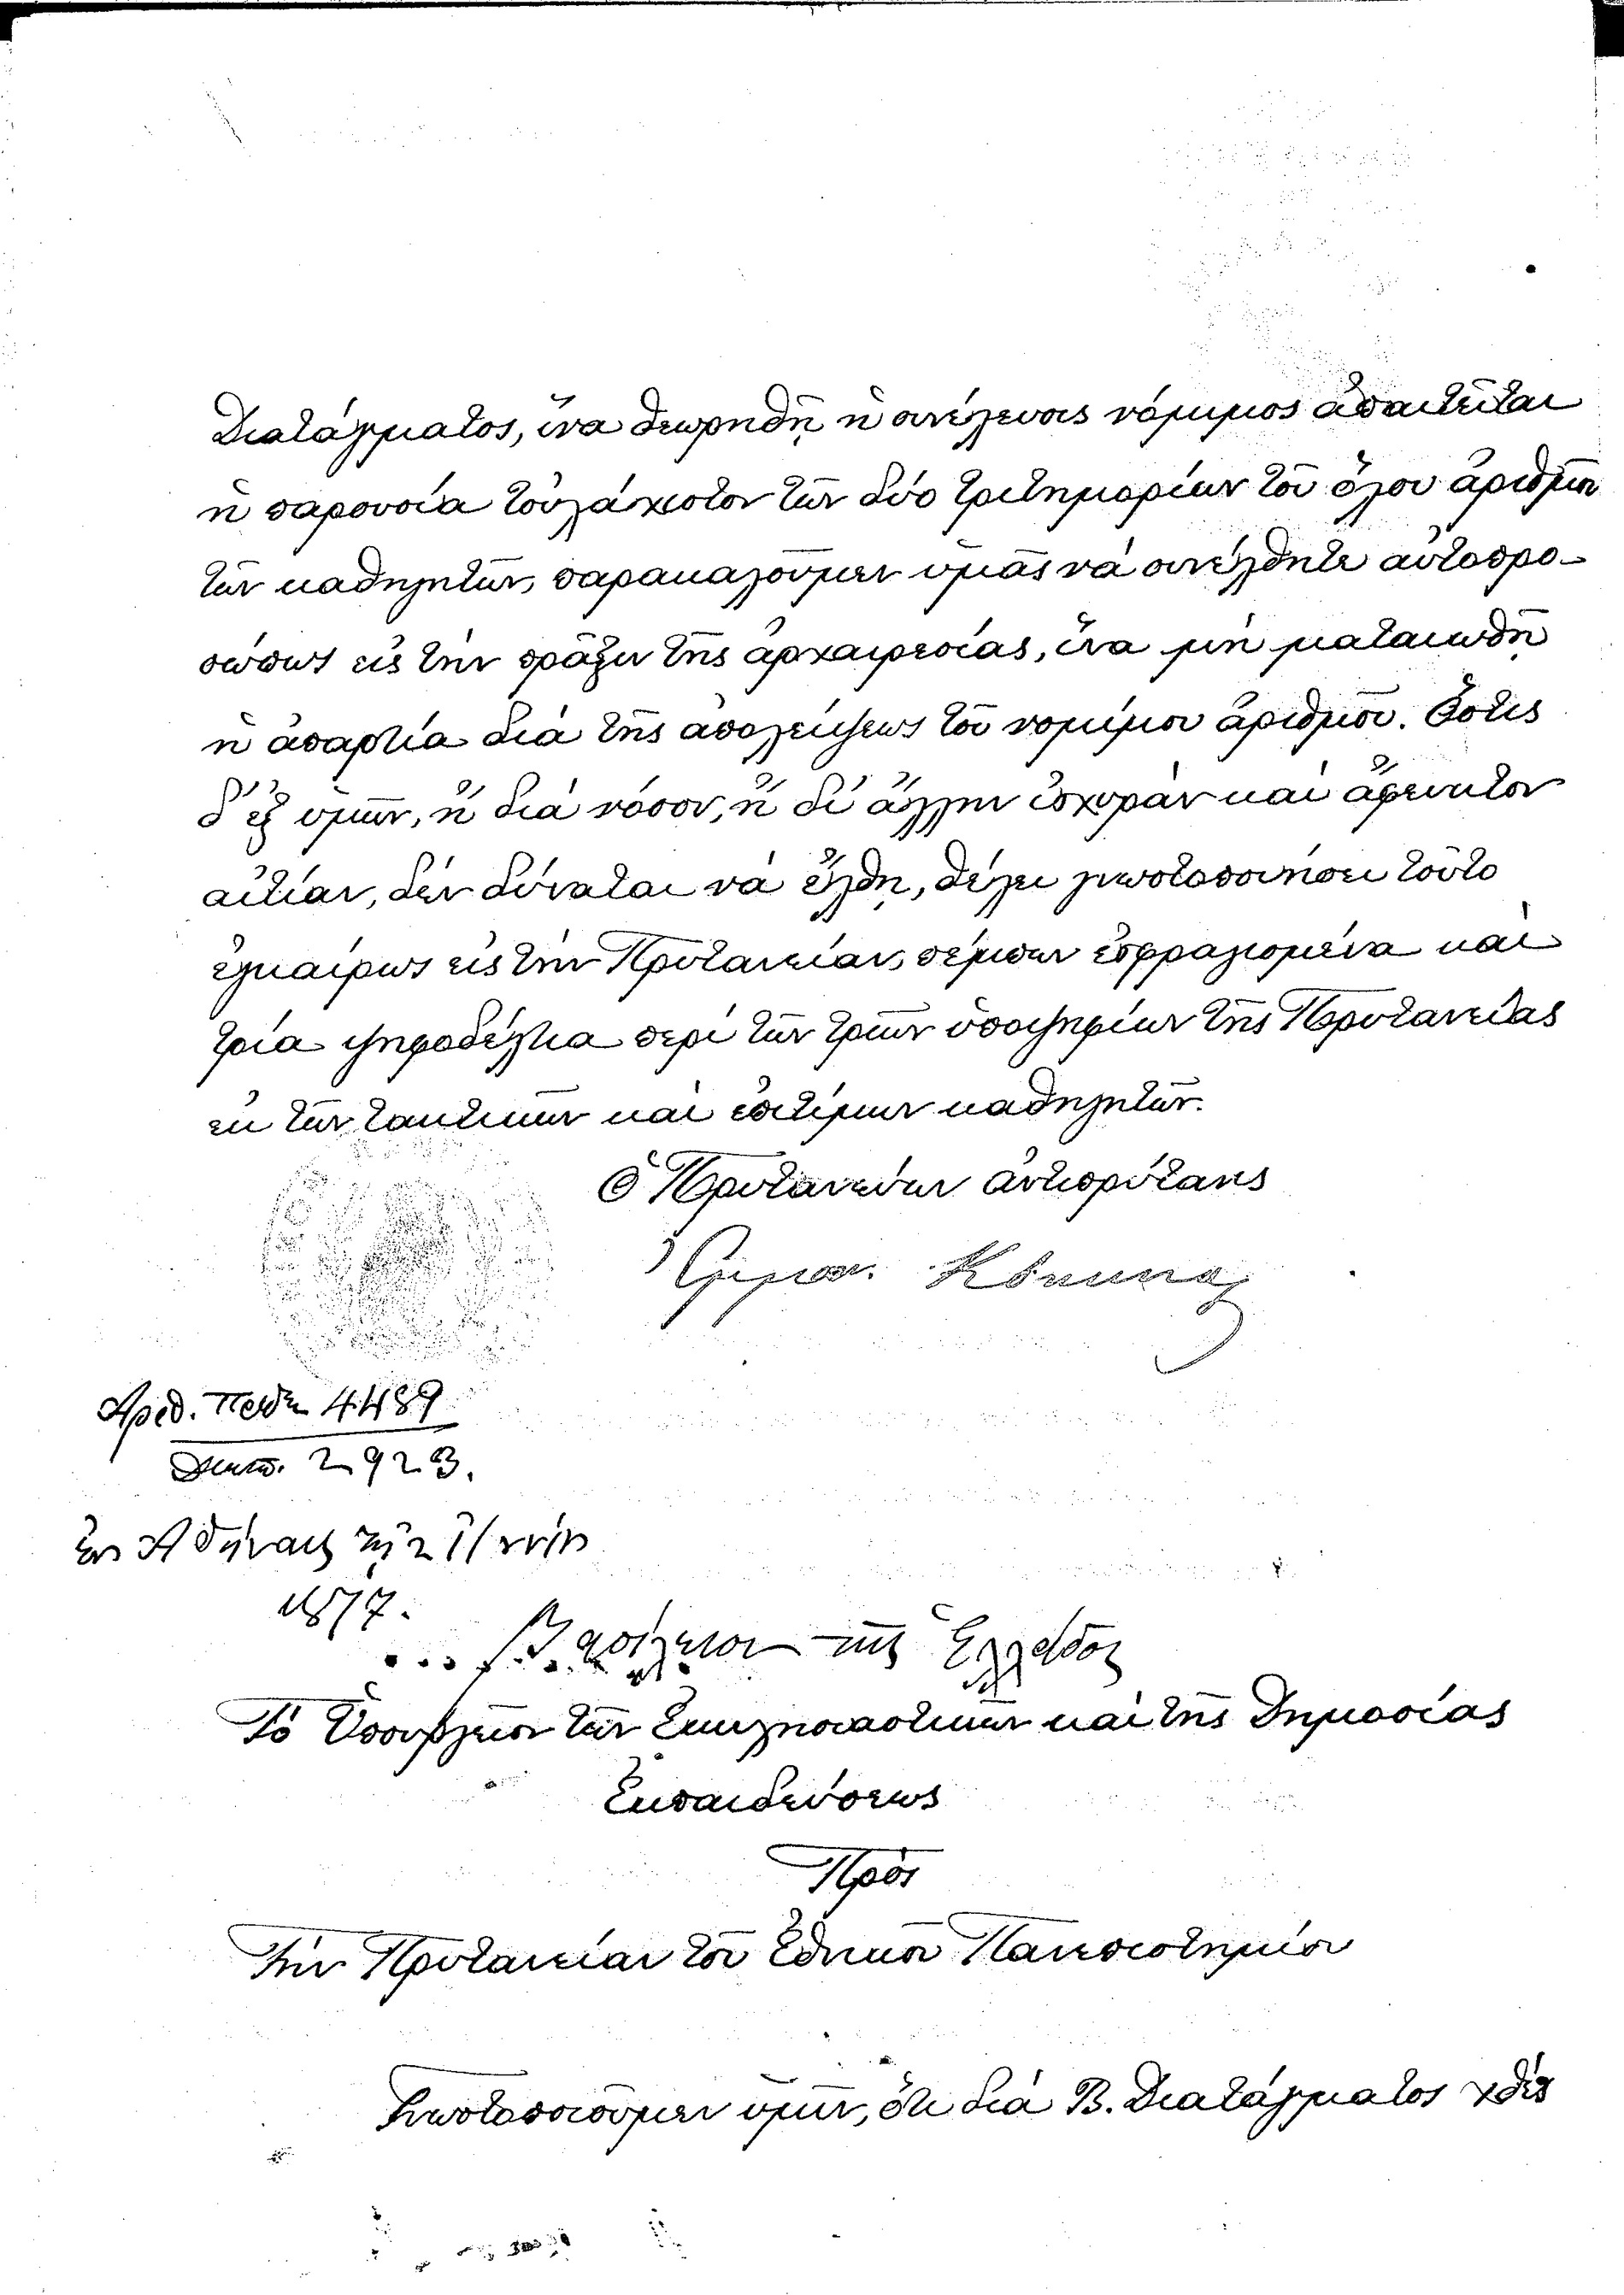 Διατάγματος, ἵνα θεωρηθῇ ἡ συνέλευσις νόμιμος ἀπαιτεῖται
ἡ παρουσία τοὐλάχιστον τῶν δύο τριτημορίων τοῦ ὅλου ἀριθμοῦ
τῶν καθηγητῶν, παρακαλοῦμεν ὑμᾶς νὰ συνέλθητε αὐτοπρο-
σώπως εἰς τὴν πρᾶξιν τῆς ἀρχαιρεσίας, ἵνα μὴ ματαιωθῇ
ἡ ἀπαρτία διὰ τῆς ἀπολείψεως τοῦ νομίμου ἀριθμοῦ. Ὅστις
δ' ἐξ ὑμῶν, ἢ διὰ νόσον, ἢ δι' ἄλλην ἰσχυρὰν καὶ ἄφευκτον
αἰτίαν, δὲν δύναται νὰ ἔλθῃ, θέλει γνωστοποιήσει τοῦτο
ἐγκαίρως εἰς τὴν Πρυτανείαν, πέμπων ἐσφραγισμένα καὶ
τρία ψηφοδέλτια περὶ τῶν τριῶν ὑποψηφίων τῆς Πρυτανείας
ἐκ τῶν τακτικῶν καὶ ἐπιτίμων καθηγητῶν.
Ὁ Πρυτανεύων ἀντιπρύτανις
Κόκκινος
Ἀριθ. Πρωτ. 4489
Διεκπ. 2923.
Ἐν Ἀθήναις τῇ
1877.
Βασίλειον τῆς Ἑλλάδος
Τὸ Ὑπουργεῖον τῶν Ἐκκλησιαστικῶν καὶ τῆς Δημοσίας
Ἐκπαιδεύσεως
Πρὸς
Τὴν Πρυτανείαν τοῦ Ἐθνικοῦ Πανεπιστημίου
Γνωστοποιοῦμεν ὑμῖν, ὅτι διὰ Β. Διατάγματος χθὲς